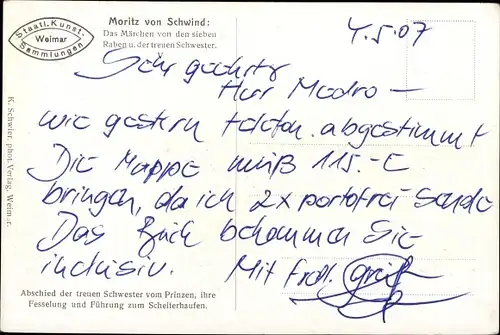 Staatl. Kunst-
Weimar
Sammlungen
Moritz von Schwind:
Das Märchen von den sieben
Raben u. der treuen Schwester.
4.5.07
Sehr geehrter
Herr Modro –
wie gestern telefon. abgestimmt
Die Mappe muß 115.-€
bringen, da ich 2x portofrei sende
Das Buch bekommen Sie
inclusiv. Mit frdl. Gruß
K. Schwier phot. Verlag, Weimar.
Abschied der treuen Schwester vom Prinzen, ihre
Fesselung und Führung zum Scheiterhaufen.